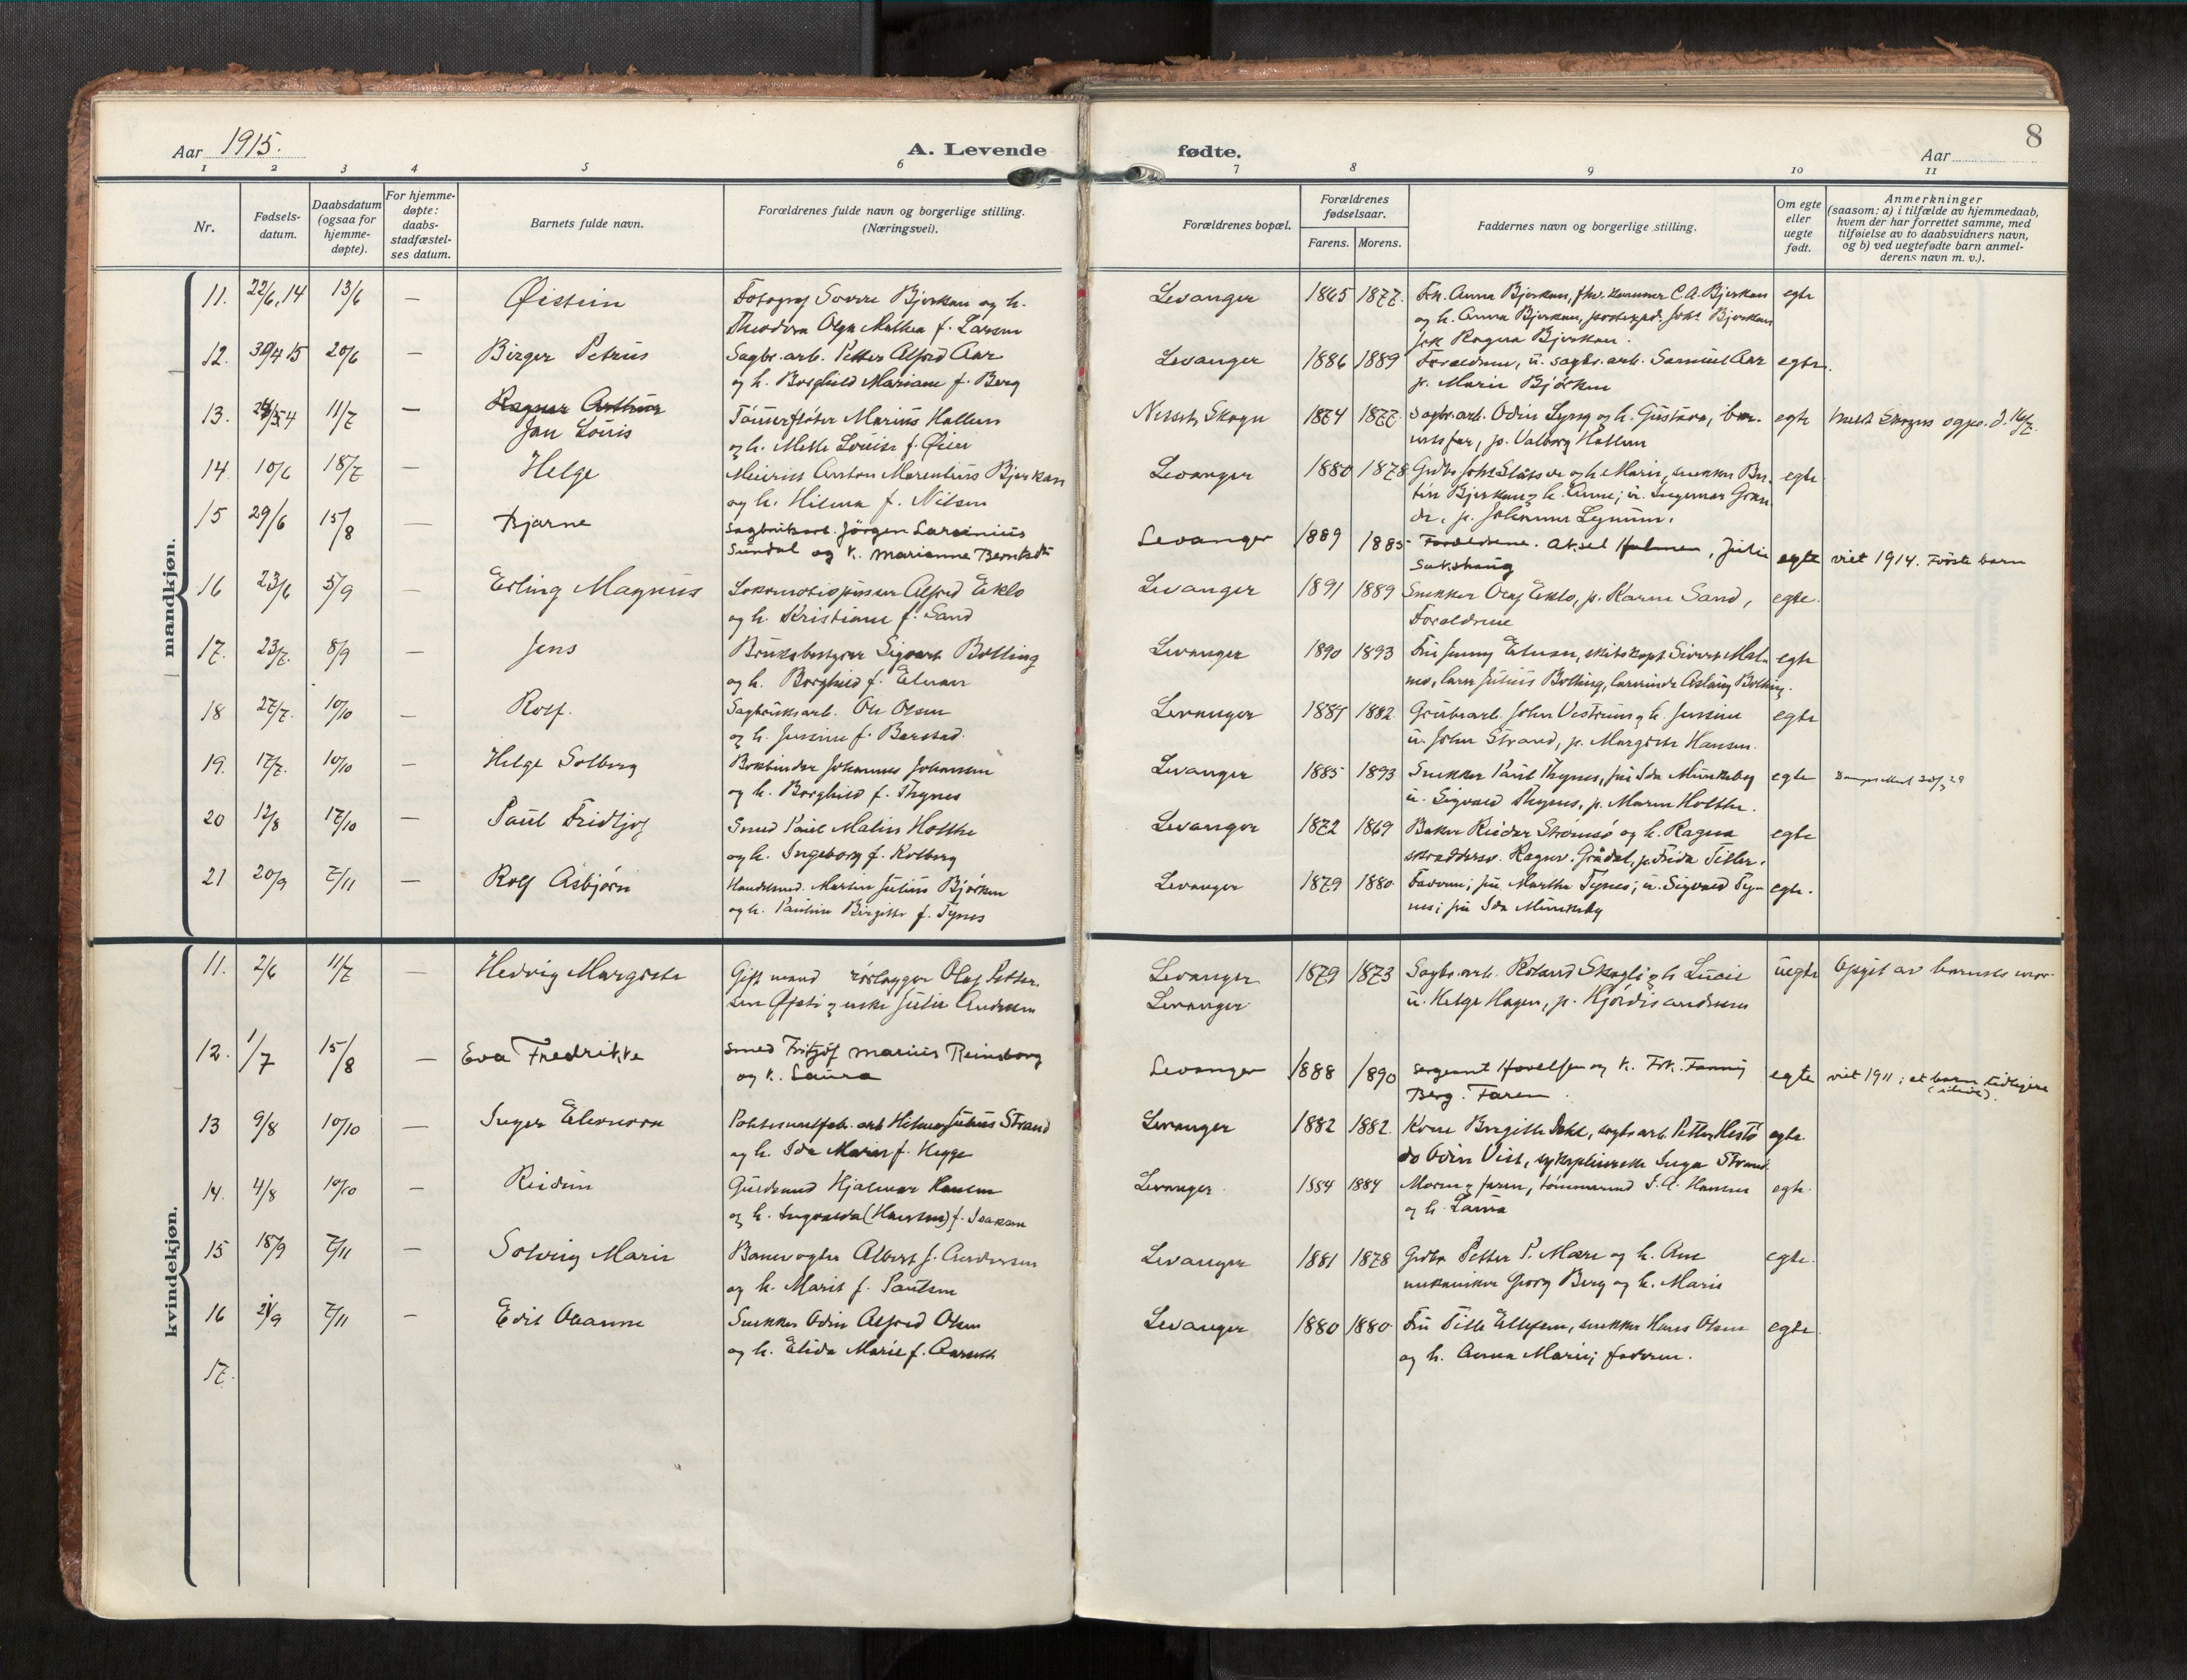 8
Aar 1915.
A. Levende
fødte.
Aar
1 2 3 4 5 6 7 8 9 10 11
Nr.
Fødsels-
datum.
Daabsdatum
(ogsaa for
hjemme-
døpte).
For hjemme-
døpte:
daabs-
stadfæstel-
ses datum.
Barnets fulde navn.
Forældrenes fulde navn og borgerlige stilling.
(Næringsvei).
Forældrenes bopæl.
Forældrenes
fødselsaar.
Farens. Morens.
Faddernes navn og borgerlige stilling.
Om egte
eller
uegte
født.
Anmerkninger
(saasom: a) i tilfælde av hjemmedaab,
hvem der har forrettet samme, med
tilføielse av to daabsvidners navn,
og b) ved uegtefødte barn anmel-
derens navn m. v.).
mandkjøn.
11. 22/6,14 13/6 — Øistein Fotograf Sverre Bjerkan og h. Levanger 1865 1877. Anna Bjerkan, C A. Bjerkan egte
Theodora Olga Mathea f. Larsen og h. Anna Bjerkan, Johs Bjerkan
Ragna Bjerkan.
12. 30/4 15 20/6 — Birger Petrus Sagbr. arb. Petter Alfred Aar Levanger 1886 1889 Forældrene, u. sagbr. arb. Samuel Aar egte.
og h. Borghild Mariane f. Berg p. Marie Bjørken
13. 11/7 — Ragnar Arthur Marius Hallem Skogn 1874 1877. Sagbr. arb. Odin og h. Gustava, egte
Jan Louis og h. Mette Louise f. Øien p. Valborg Hallem
14. 10/6 18/7 — Helge Meierist Anton Marentius Bjerkan Levanger 1880 1878 og h. Marie, snekker egte
og h. Hilma f. Nilsen Bjerkan og h. Anne; u. Ingemar
p. Johanna Lynum.
15 29/6 15/8 — Bjarne Sagbruksarb. Jørgen Larsenius Levanger 1889 1885 Forældrene. Aksel Holmen, Julie egte viet 1914. Første barn
Sundal og k. Marianne
16 23/6 5/9 — Erling Magnus Lokomotivpusser Alfred Eklo Levanger 1891 1889 Snekker Olaf Eklo, p. Karen Sand, egte.
og h. Kristiane f. Sand Forældrene
17. 23/7. 8/9 — Jens Bruksbestyrer Sigvart Bolling Levanger 1890 1893 Fru Jenny Elnan, Sivert egte
og h. Borghild f. Elnan Julius Bolling, lærerinde Aslaug Bolling.
18 27/7. 10/10 — Rolf. Sagbruksarb. Ole Olsen Levanger 1881 1882 Grubearb. John og h. Jensine egte
og h. Jensine f. Barstad. u. John Strand, p. Margrete Hansen.
19. 17/7. 10/10 — Helge Solberg Bokbinder Johannes Johansen Levanger 1885 1893 Snekker Paul Thynes, fru Ida Munkeby egte
og h. Borghild f. Thynes u. Sigvald Thynes, p. Maren Holthe.
20 12/8 17/10 — Paul Fridtjof Smed Paul Malin Holthe Levanger 1872 1869 Baker Reidar Strømsø og h. Ragna egte
og h. Ingeborg f. Kolberg skræddersv. Ragnv. Grødal, p. Frida Tiller.
21 20/9 7/11 — Rolf Asbjørn Handelsmd. Martin Julius Bjørken Levanger 1879 1880 Faderen; fru Martha Tynes; u. Sigvald Ty- egte.
og h. Pauline Birgitte f. Tynes nes; fru Ida Munkeby
kvindekjøn.
11. 2/6 11/7 — Hedvig Margrete Gift mand rørlægger Olaf Petter- Levanger 1879 1873 Sagbr. arb. Roland Skogli og h. Lucie uegte Opgit av barnets mor
sen og enke Julie Andresen Levanger u. Helge Hagen, p. Hjørdis Andresen
12. 1/7 15/8 — Eva Fredrikke Smed Fritjof Marius Reinsborg Levanger 1888 1890 Sergeant og k. Frk. Fanny egte viet 1911; et barn tidligere
og k. Laura Berg. Faren. (ilive).
13 9/8 10/10 — Inger Eleonora arb. Hilmar Julius Strand Levanger 1882 1882. Kone Birgitte sagbr. arb. Petter egte.
og h. Ida Marie f. Hegge do Odin Vist, Inga Strand.
14. 4/8 10/10 — Reidun Guldsmed Hjalmar Hansen Levanger. 1884 1884 Moren og faren, tømmermd. J. A. Hansen egte.
og h. Ingvalda (Hansen) f. Isaksen og h. Laura
15 18/9 7/11 — Solveig Marie Banevogter Albert J. Andersen Levanger 1881 1878 Grdbr. Petter P. Mære og h. Ane egte.
og h. Marit f. Paulsen mekaniker Georg Berg og h. Marie
16 21/9 7/11 — Edit Oleanne Snekker Odin Alfred Olsen Levanger 1880 1880 Fru Tilla Ellefsen, snekker Hans Olsen egte.
og h. Elida Marie f. og h. Anna Marie; faderen.
17.